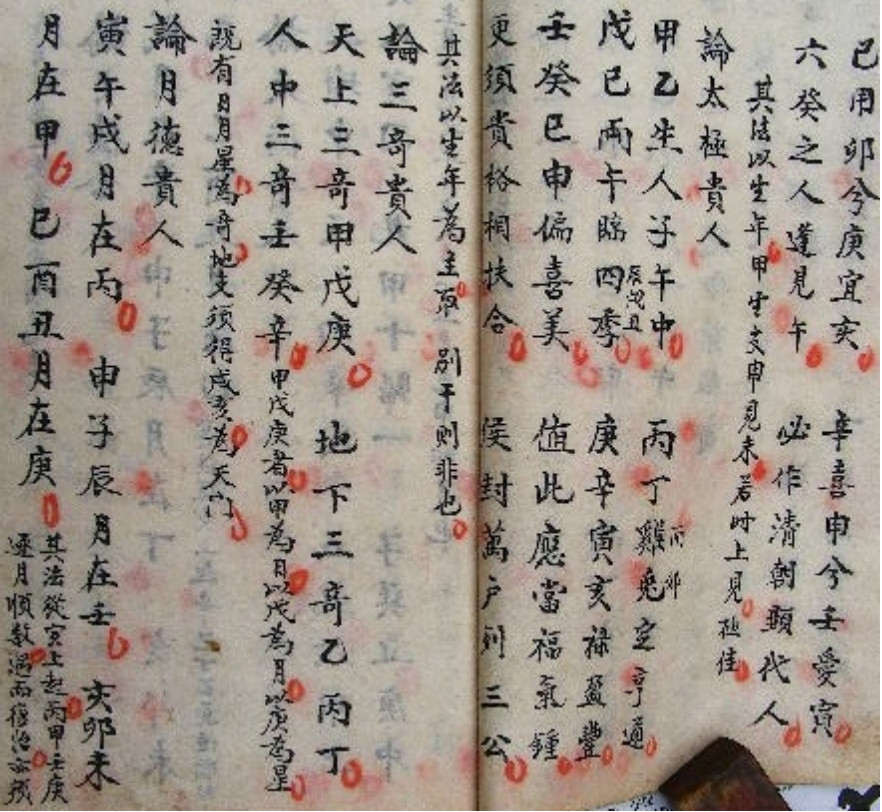 己用卯兮庚宜亥 辛喜申兮壬愛寅
六癸之人蓬見午 必作清朝顕代人
其法以生年甲生支申見未若时上見極佳
論太極貴人
甲乙生人子午中 丙丁雞兎定亨通
酉卯
戊己兩午臨四季 庚辛寅亥禄盈豐
辰戌丑
壬癸巳申偏喜美 值此應當福氣鍾
更須貴格相扶合 侯封萬户列三公
其法以生年為主取別干則非也
論三奇貴人
天上三奇甲戊庚 地下三奇乙丙丁
人中三奇壬癸辛 甲戊庚者以甲為日以戊為月以庚為星
既有日月星為奇地支須得戌亥為天门
論月德貴人
寅午戌月在丙 申子辰月在壬 亥卯未
月在甲 巳酉丑月在庚 其法從寅上起丙甲壬庚
逐月順数過而復治亦須